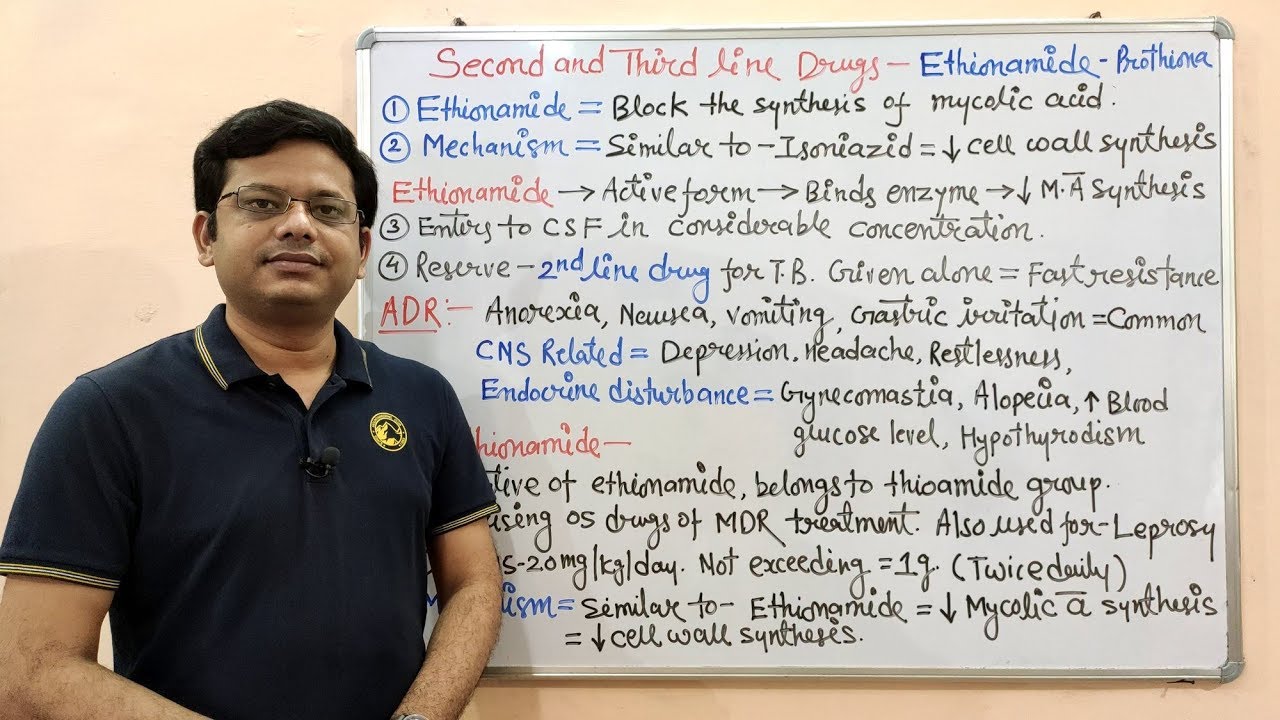 Second and Third line Drugs - Ethionamide - Prothiona
① Ethionamide = Block the synthesis of mycolic acid.
② Mechanism = Similar to - Isoniazid = ↓ cell wall synthesis
Ethionamide → Active form → Binds enzyme → ↓ M.A synthesis
③ Enters to CSF in considerable concentration.
④ Reserve - 2nd line drug for T.B. Given alone = Fast resistance
ADR:- Anorexia, Nausea, Vomiting, Gastric irritation = Common
CNS Related = Depression, Headache, Restlessness,
Endocrine disturbance = Gynecomastia, Alopecia, ↑ Blood
glucose level, Hypothyrodism
hionamide -
tive of ethionamide, belongs to thioamide group.
using 05 drugs of MDR treatment. Also used for - Leprosy
5-20mg/kg/day. Not exceeding = 1g. (Twice daily)
ism = Similar to - Ethionamide = ↓ Mycolic a synthesis
= ↓ cell wall synthesis.